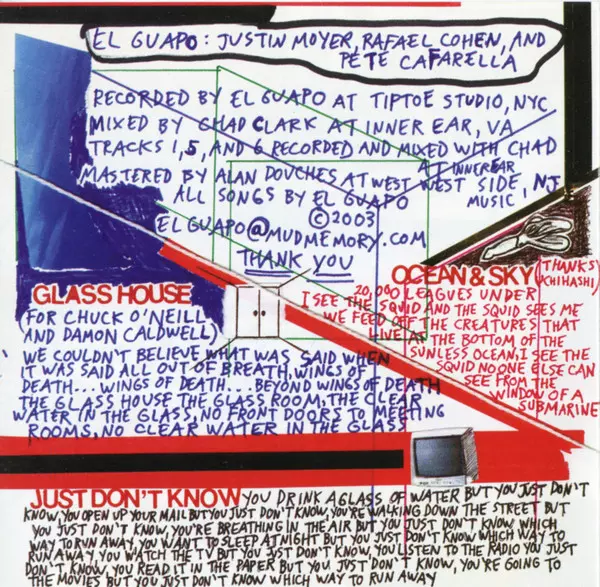 EL GUAPO: JUSTIN MOYER, RAFAEL COHEN, AND
PETE CAFARELLA
RECORDED BY EL GUAPO AT TIPTOE STUDIO, NYC
MIXED BY CHAD CLARK AT INNER EAR, VA
TRACKS 1, 5, AND 6 RECORDED AND MIXED WITH CHAD
AT INNER EAR
MASTERED BY ALAN DOUCHES AT WEST WEST SIDE, NJ
ALL SONGS BY EL GUAPO MUSIC
©2003
ELGUAPO@MUDMEMORY.COM
THANK YOU
GLASS HOUSE
(FOR CHUCK O'NEILL
AND DAMON CALDWELL)
WE COULDN'T BELIEVE WHAT WAS SAID WHEN
IT WAS SAID ALL OUT OF BREATH, WINGS OF
DEATH... WINGS OF DEATH... BEYOND WINGS OF DEATH
THE GLASS HOUSE THE GLASS ROOM, THE CLEAR
WATER IN THE GLASS, NO FRONT DOORS TO MEETING
ROOMS, NO CLEAR WATER IN THE GLASS
OCEAN & SKY (THANKS
UCHIHASHI)
20,000 LEAGUES UNDER
I SEE THE SQUID AND THE SQUID SEES ME
WE FEED OFF THE CREATURES THAT
LIVE AT THE BOTTOM OF THE
SUNLESS OCEAN, I SEE THE
SQUID NO ONE ELSE CAN
SEE FROM THE
WINDOW OF A
SUBMARINE
JUST DON'T KNOW YOU DRINK A GLASS OF WATER BUT YOU JUST DON'T
KNOW, YOU OPEN UP YOUR MAIL BUT YOU JUST DON'T KNOW, YOU'RE WALKING DOWN THE STREET BUT
YOU JUST DON'T KNOW, YOU'RE BREATHING IN THE AIR BUT YOU JUST DON'T KNOW WHICH
WAY TO RUN AWAY, YOU WANT TO SLEEP AT NIGHT BUT YOU JUST DON'T KNOW WHICH WAY TO
RUN AWAY, YOU WATCH THE TV BUT YOU JUST DON'T KNOW, YOU LISTEN TO THE RADIO YOU JUST
DON'T KNOW, YOU READ IT IN THE PAPER BUT YOU JUST DON'T KNOW, YOU'RE GOING TO
THE MOVIES BUT YOU JUST DON'T KNOW WHICH WAY TO RUN AWAY